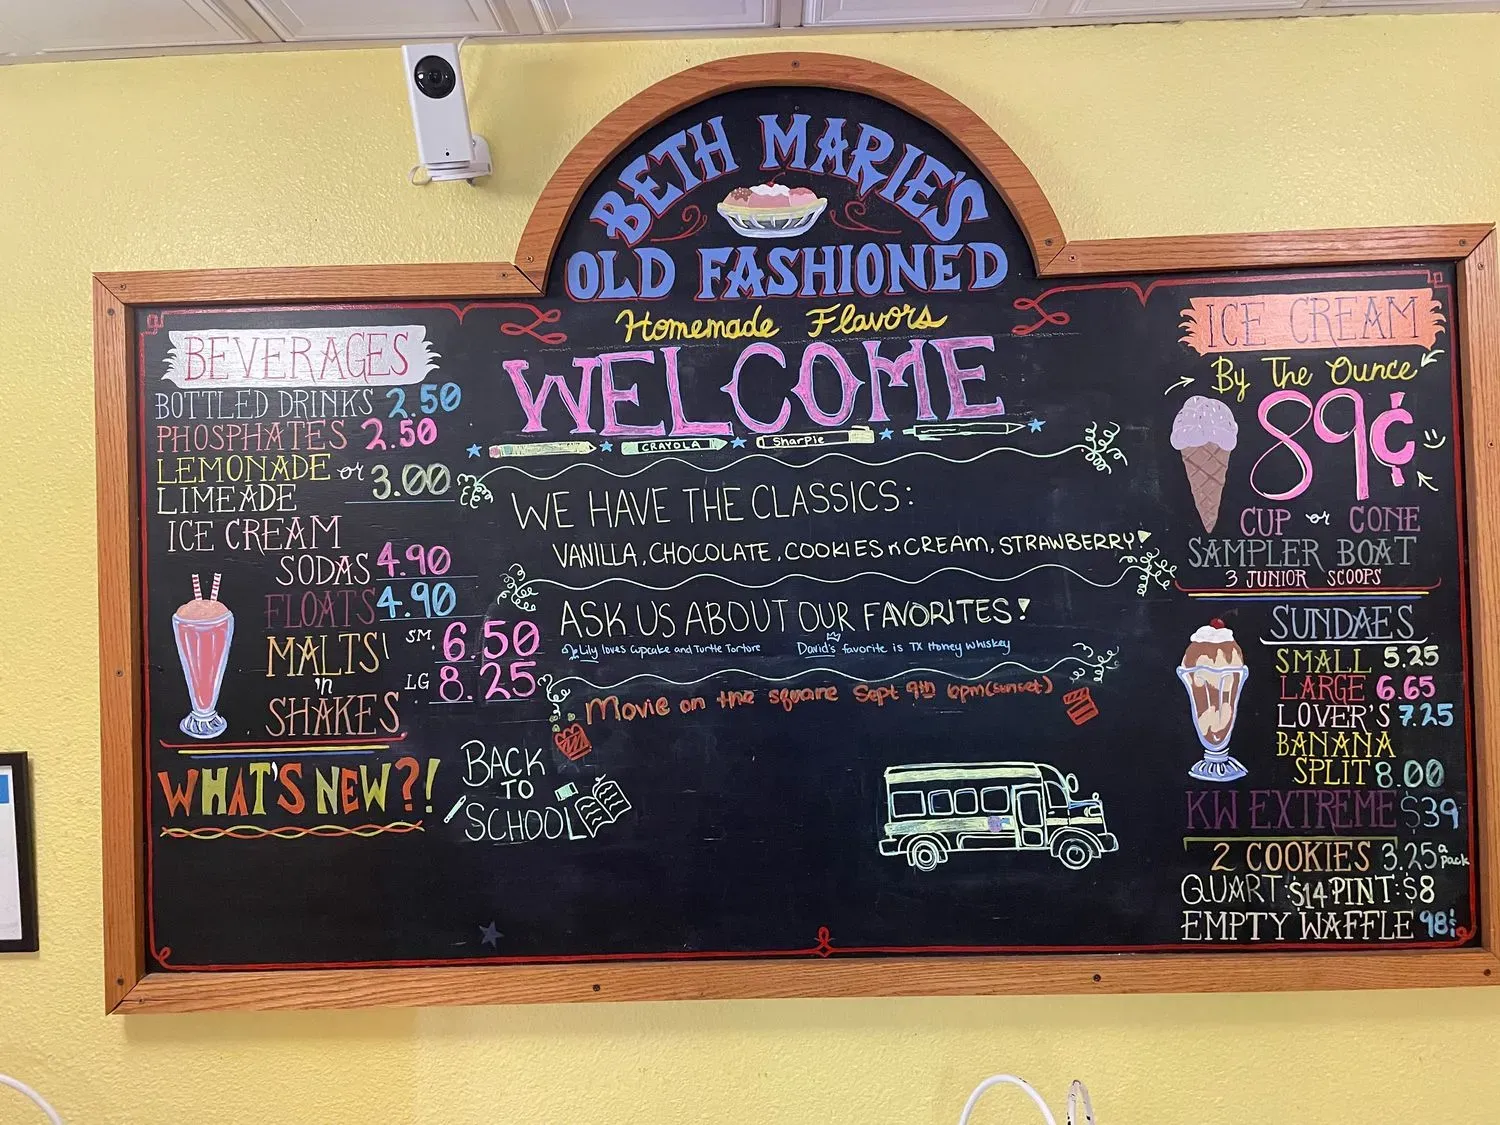 BETH MARIE'S
OLD FASHIONED
Homemade Flavors
WELCOME
CRAYOLA
Sharpie
BEVERAGES
BOTTLED DRINKS 2.50
PHOSPHATES 2.50
LEMONADE or
LIMEADE 3.00
ICE CREAM
SODAS 4.90
FLOATS 4.90
MALTS SM 6.50
'n LG 8.25
SHAKES
WHAT'S NEW?!
BACK
TO
SCHOOL
WE HAVE THE CLASSICS:
VANILLA, CHOCOLATE, COOKIES n CREAM, STRAWBERRY!
ASK US ABOUT OUR FAVORITES!
Lily loves Cupcake and Turtle Torture David's favorite is TX Honey Whiskey
Movie on the square Sept 9th 6pm (sunset)
ICE CREAM
By The Ounce
89¢
CUP or CONE
SAMPLER BOAT
3 JUNIOR SCOOPS
SUNDAES
SMALL 5.25
LARGE 6.65
LOVER'S 7.25
BANANA
SPLIT 8.00
KW EXTREME $39
2 COOKIES 3.25 a pack
QUART: $14 PINT: $8
EMPTY WAFFLE 98¢